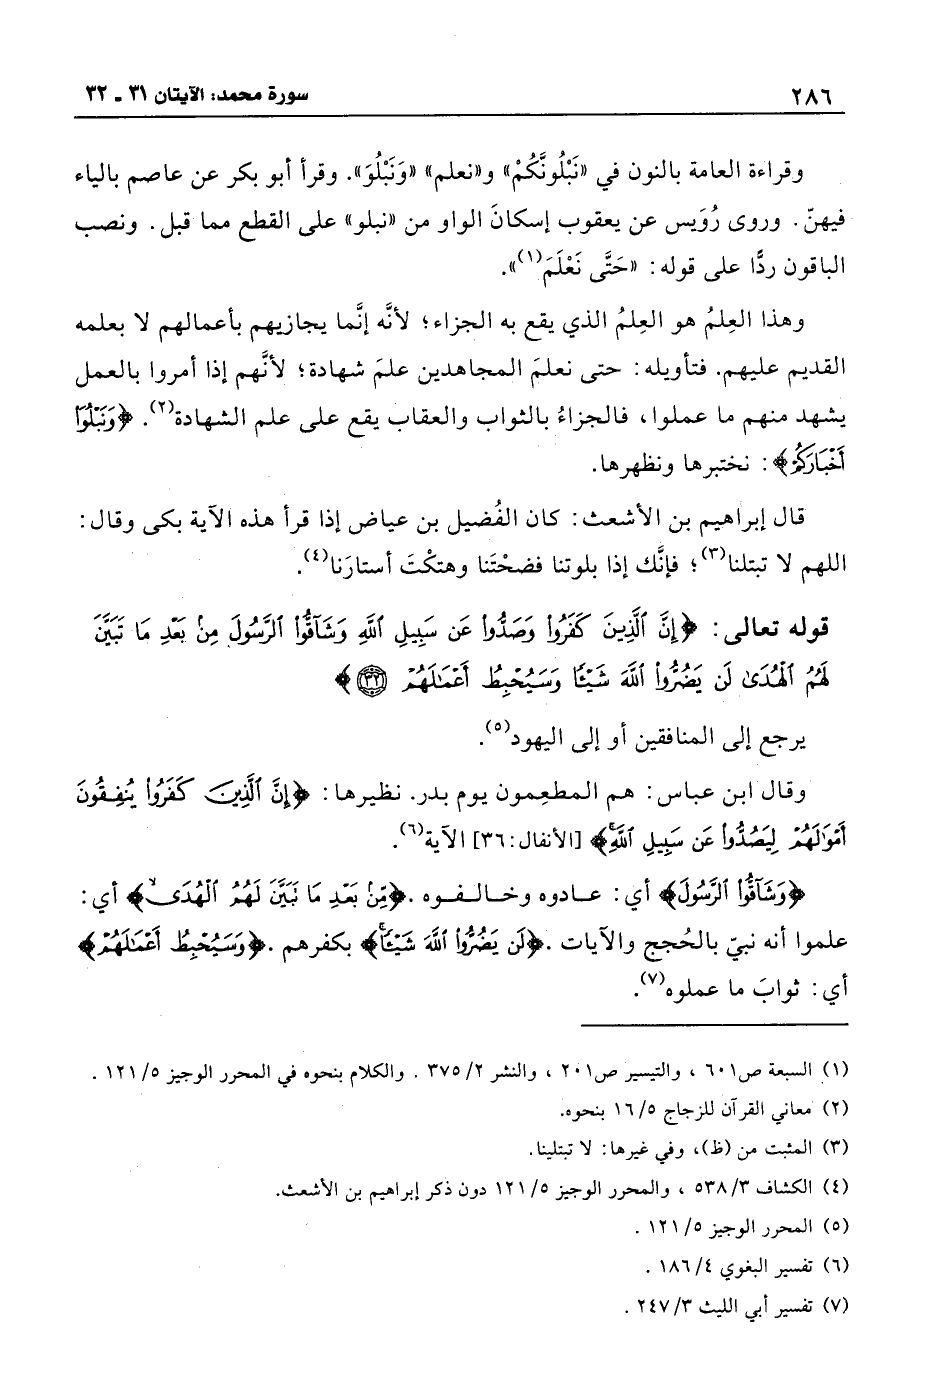 ٢٨٦
سورة محمد: الآيتان ٣١ ـ ٣٢
وقراءة العامة بالنون في «نَبْلُونَّكُمْ» و«نعلم» «وَنَبْلُوَ». وقرأ أبو بكر عن عاصم بالياء
فيهنّ. وروى رُوَيس عن يعقوب إسكانَ الواو من «نبلو» على القطع مما قبل. ونصب
الباقون ردًّا على قوله: «حَتَّى نَعْلَمَ(١)».
وهذا العِلمُ هو العِلمُ الذي يقع به الجزاء؛ لأنَّه إنَّما يجازيهم بأعمالهم لا بعلمه
القديم عليهم. فتأويله: حتى نعلمَ المجاهدين علمَ شهادة؛ لأنَّهم إذا أمروا بالعمل
يشهد منهم ما عملوا، فالجزاءُ بالثواب والعقاب يقع على علم الشهادة(٢). ﴿وَنَبْلُوَا۟
أَخْبَارَكُمْ﴾: نختبرها ونظهرها.
قال إبراهيم بن الأشعث: كان الفُضيل بن عياض إذا قرأ هذه الآية بكى وقال:
اللهم لا تبتلنا(٣)؛ فإنَّك إذا بلوتنا فضحْتَنا وهتكْتَ أستارَنا(٤).
قوله تعالى: ﴿إِنَّ ٱلَّذِينَ كَفَرُوا۟ وَصَدُّوا۟ عَن سَبِيلِ ٱللَّهِ وَشَآقُّوا۟ ٱلرَّسُولَ مِنۢ بَعْدِ مَا تَبَيَّنَ
لَهُمُ ٱلْهُدَىٰ لَن يَضُرُّوا۟ ٱللَّهَ شَيْـًٔا وَسَيُحْبِطُ أَعْمَـٰلَهُمْ ٣٢﴾
يرجع إلى المنافقين أو إلى اليهود(٥).
وقال ابن عباس: هم المطعِمون يوم بدر. نظيرها: ﴿إِنَّ ٱلَّذِينَ كَفَرُوا۟ يُنفِقُونَ
أَمْوَٰلَهُمْ لِيَصُدُّوا۟ عَن سَبِيلِ ٱللَّهِۚ﴾ [الأنفال: ٣٦] الآية(٦).
﴿وَشَآقُّوا۟ ٱلرَّسُولَ﴾ أي: عادوه وخالفوه. ﴿مِنۢ بَعْدِ مَا تَبَيَّنَ لَهُمُ ٱلْهُدَىٰ﴾ أي:
علموا أنه نبيّ بالحُجج والآيات. ﴿لَن يَضُرُّوا۟ ٱللَّهَ شَيْـًٔا﴾ بكفرهم. ﴿وَسَيُحْبِطُ أَعْمَـٰلَهُمْ﴾
أي: ثوابَ ما عملوه(٧).
(١) السبعة ص٦٠١ ، والتيسير ص٢٠١ ، والنشر ٢/ ٣٧٥ . والكلام بنحوه في المحرر الوجيز ٥/ ١٢١ .
(٢) معاني القرآن للزجاج ٥/ ١٦ بنحوه.
(٣) المثبت من (ظ)، وفي غيرها: لا تبتلينا.
(٤) الكشاف ٣/ ٥٣٨ ، والمحرر الوجيز ٥/ ١٢١ دون ذكر إبراهيم بن الأشعث.
(٥) المحرر الوجيز ٥/ ١٢١ .
(٦) تفسير البغوي ٤/ ١٨٦ .
(٧) تفسير أبي الليث ٣/ ٢٤٧ .